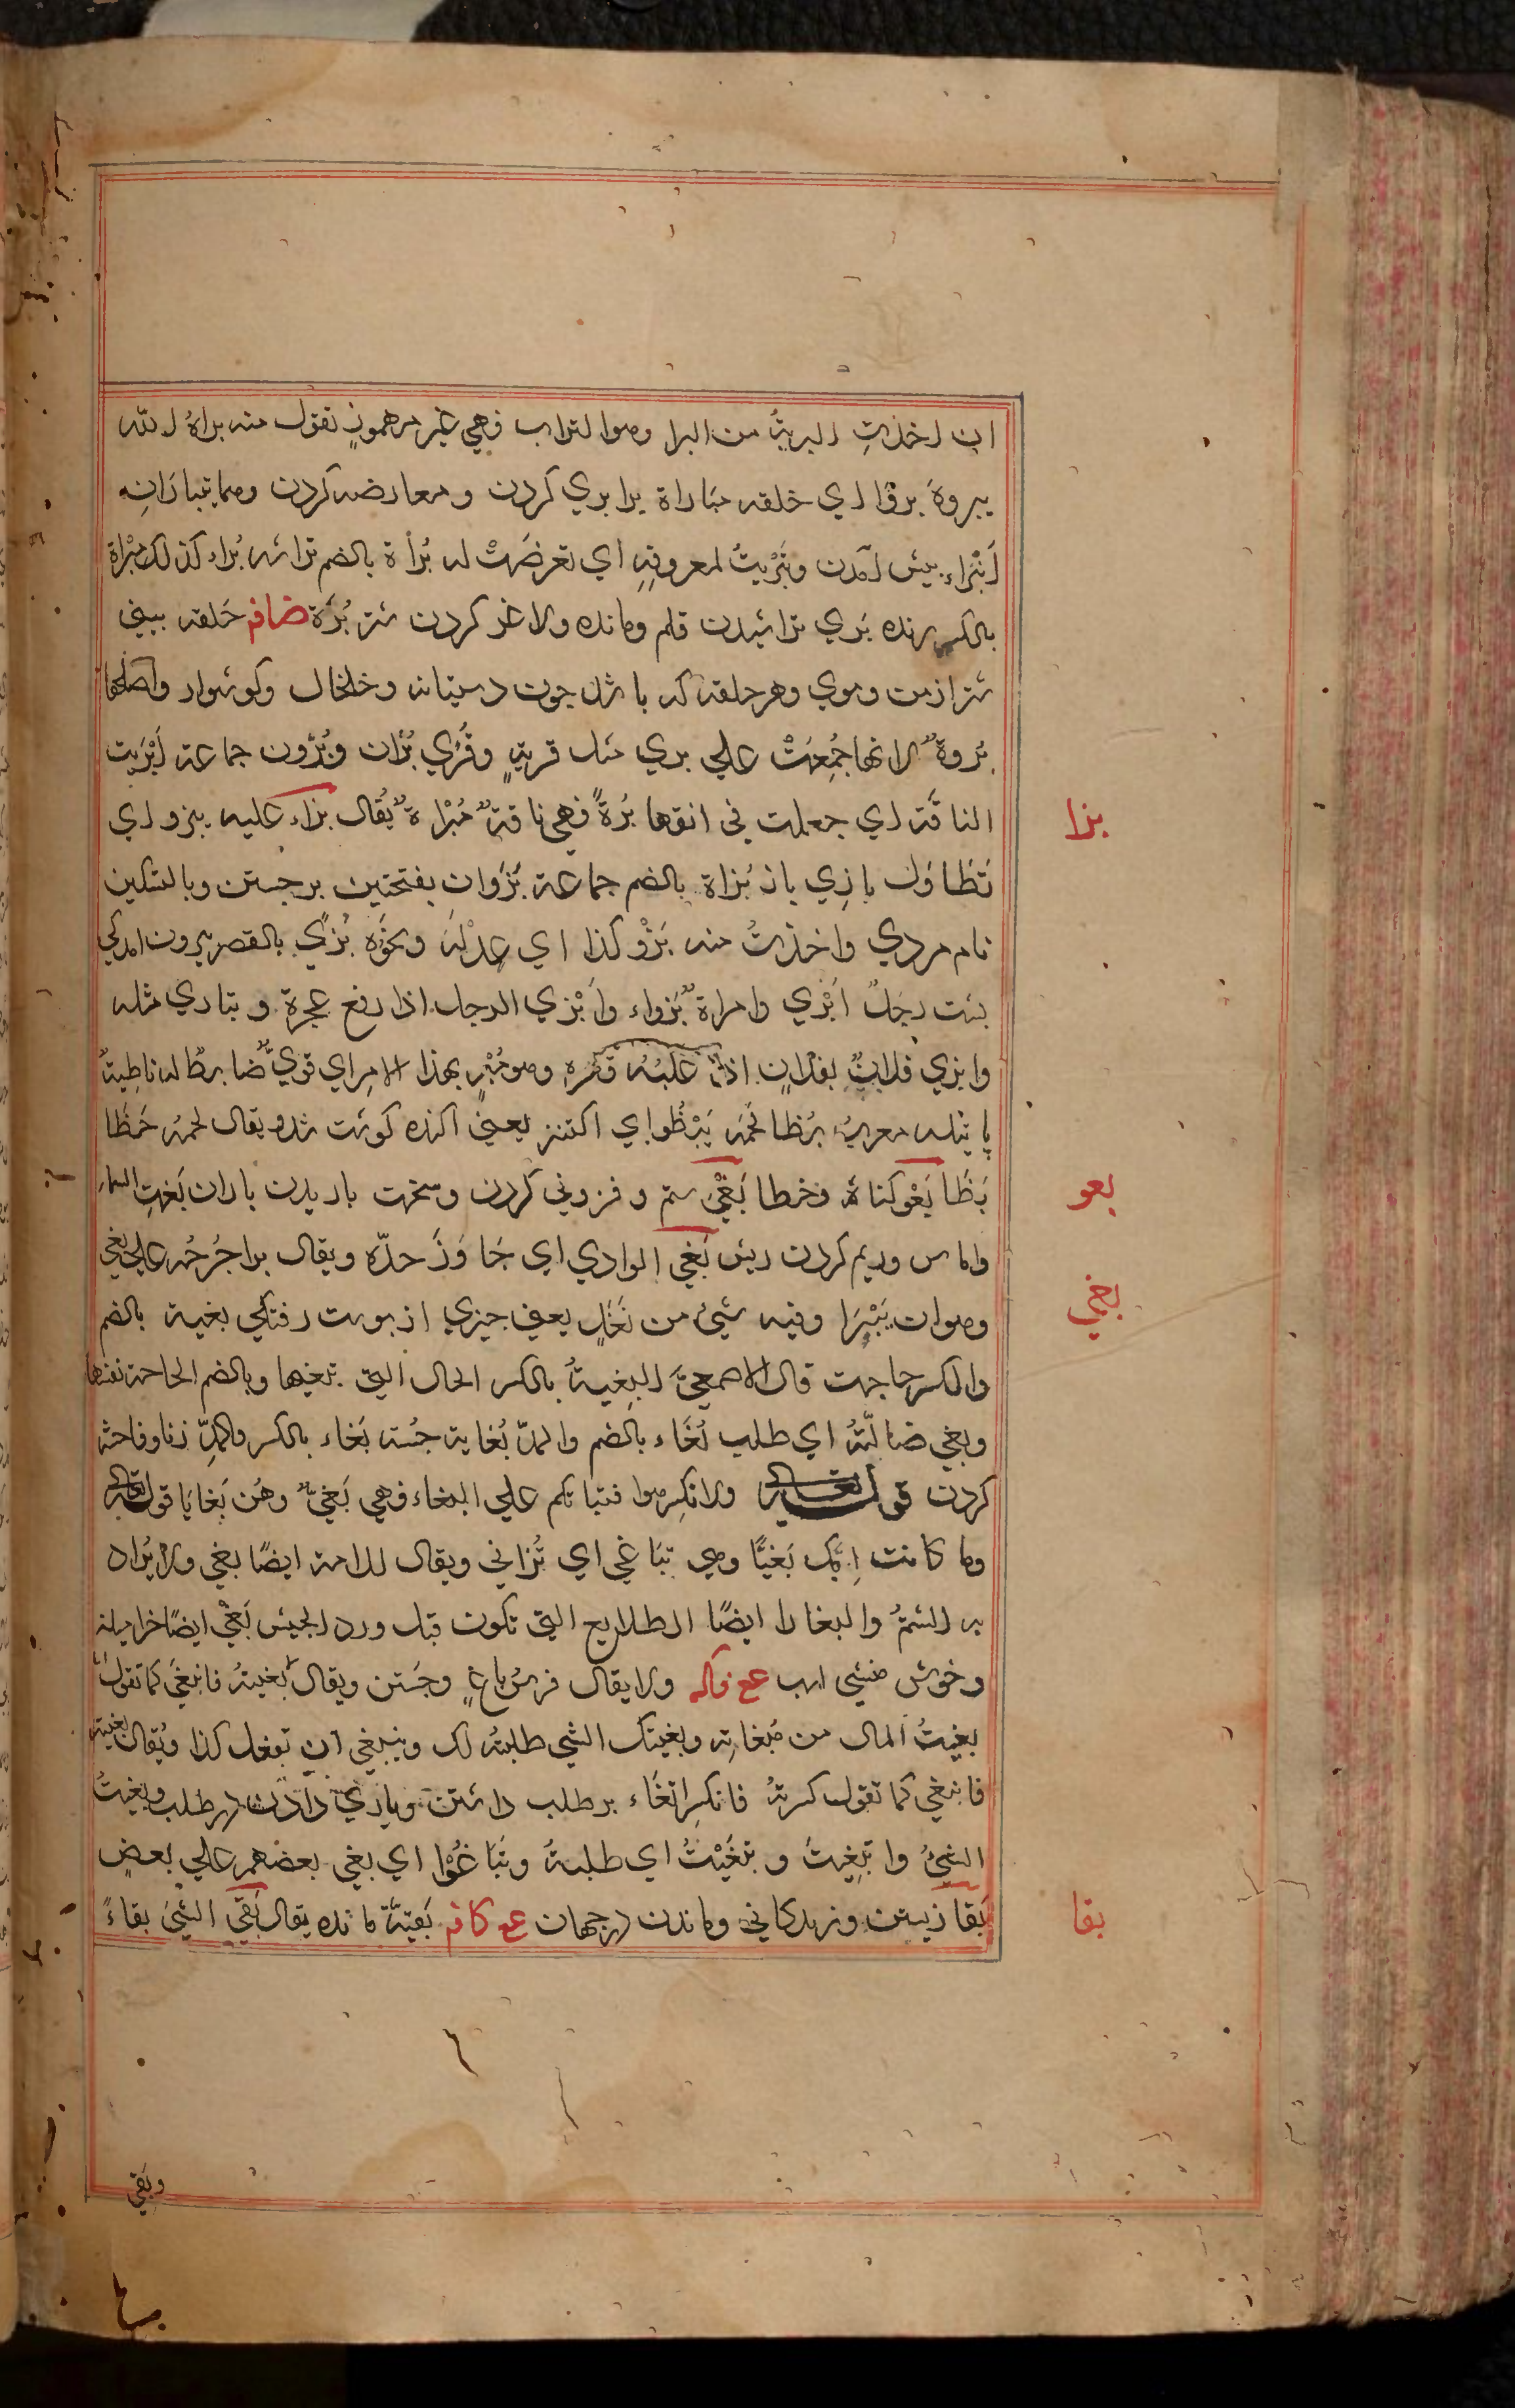 ان اخذتِ البريةُ من البرا وهو التراب فهي غير مهموزٍ تقول منه براهُ الله
يبروهَ بروًا اي خلقه مباراة برابري كردن و معارضه كردن وهما يتبارَانِه
اَنبْراء پيش آمدن وتبَرّيتُ لمعروفِهِ اي تعرضَتْ له بُراة بالضم تراشه بُراء كذلك مِبْراة
بالكسر رنده بَري تراشيدن قلم ومانده ولاغر كردن شتر بُرَة ضافه حَلقه بيني
شتر از مس وموي وهر حلقه كه باشد چون دستيانه وخلخال وگوشوار واصلها
بُروةٌ لانها جُمِعَتْ علي بري مثل قريةٍ وقُري بُران وبُرُون جماعة اَبْرَيت
بزا
الناقَة اي جعلت في انفها بُرةً فهي ناقةٌ مُبْراةٌ يُقال بزاء عليه يبزو اي
تَطَاوَل بازِي باز بُزاة بالضم جماعة بَزَوان بفتحتين برجستن وبالتسكين
نام مردي واخذتُ منه بَزْو كذا اي عِدْلَهَ ونحوَه بُزَي بالقصر بيرون آمدگي
پشت رجلٌ اَبْزي وامراةٌ بَزواء واَبْزي الرجل اذا رفع عجزة و تبازي مثله
وابزي فلانٌ بفلانٍ اذا غلبُهُ قهره وهو مُبْزٍ بهذا الامر اي قويٌّ ضابطٌ له ناطِيةُ
پا تيله معربُ بَُظا لحَمه يَبْظُو اي اكتنز يعني اكنده گوشت شد ويقال لحمُه خَظَا
بعو
بَظَا بَعْو گناهَ وخطا بَغْي ستم و فزوني كردن وسخت باريدن باران بَغتِ السماء
بغي
واماس وريم كردن ريش بَغي الوادي اي جَاوَزَ حدّه ويقال برا جُرْحُه علي بغي
وهو ان يَبْرَا وفيه شيٌ من نَغَلٍ يعني چيزي از پوست رفتگي بغية بالضم
والكسر حاجت قال الاصمعيُّ البِغيةُ بالكسر الحال التي تبغيها وبالضم الحاحة نفسها
وبغي ضالّتهُ اي طلب بُغَاء بالضم والمدّ بُغاية جُسته بَغاء بالكسر والمدّ زنا وفاحشه
كردن قوله تعالي ولا تكرهوا فتياتكم علي البغاء فهي بَغيٌّ وهُن بَغايَا قوله تعالي
وما كانت اِمّك بَغيًّا وهي تبَاغي اي تُزاني ويقال للامة ايضًا بغي ولا يُراد
به الشتمُ والبغايا ايضًا الطلايع التي تكون قبل ورد الجيش بَغْي ايضًا خراميدن
وخوش منشي اسب ولا يقال فرسُ باغٍ وجَستن ويقال بَغيتهُ فانبغَي كما تقول
بغيتُ المال من مَبغاتِه وبغيتك الشي طلبتهُ لك وينبغي ان تفعل كذا ويُقال بغيته
فانبغي كما تقول كسرتهُ فانكسر اِبتغَاء بر طلب داشتن وياري دادن در طلب وبغيتُ
الشيُ وابتغيتَ و تبغّيْتُ اي طلبتهُ وتَبَاغَوْا اي بغي بعضهم علي بعضٍ
بقا
بَقا زيستن وزندگاني وماندن در جهان بَقيّة مانده يقال بَقي الشيَ بقاءً
وبَقي